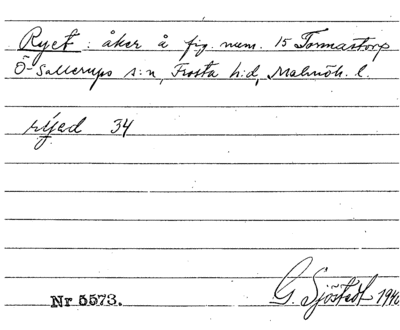 Ryet: åker å fig. num. 15 Tormastorp
Ö-Sallerups s:n, Frosta h:d, Malmöh. l.
34
Nr 5573.
G. Sjöstedt 1946